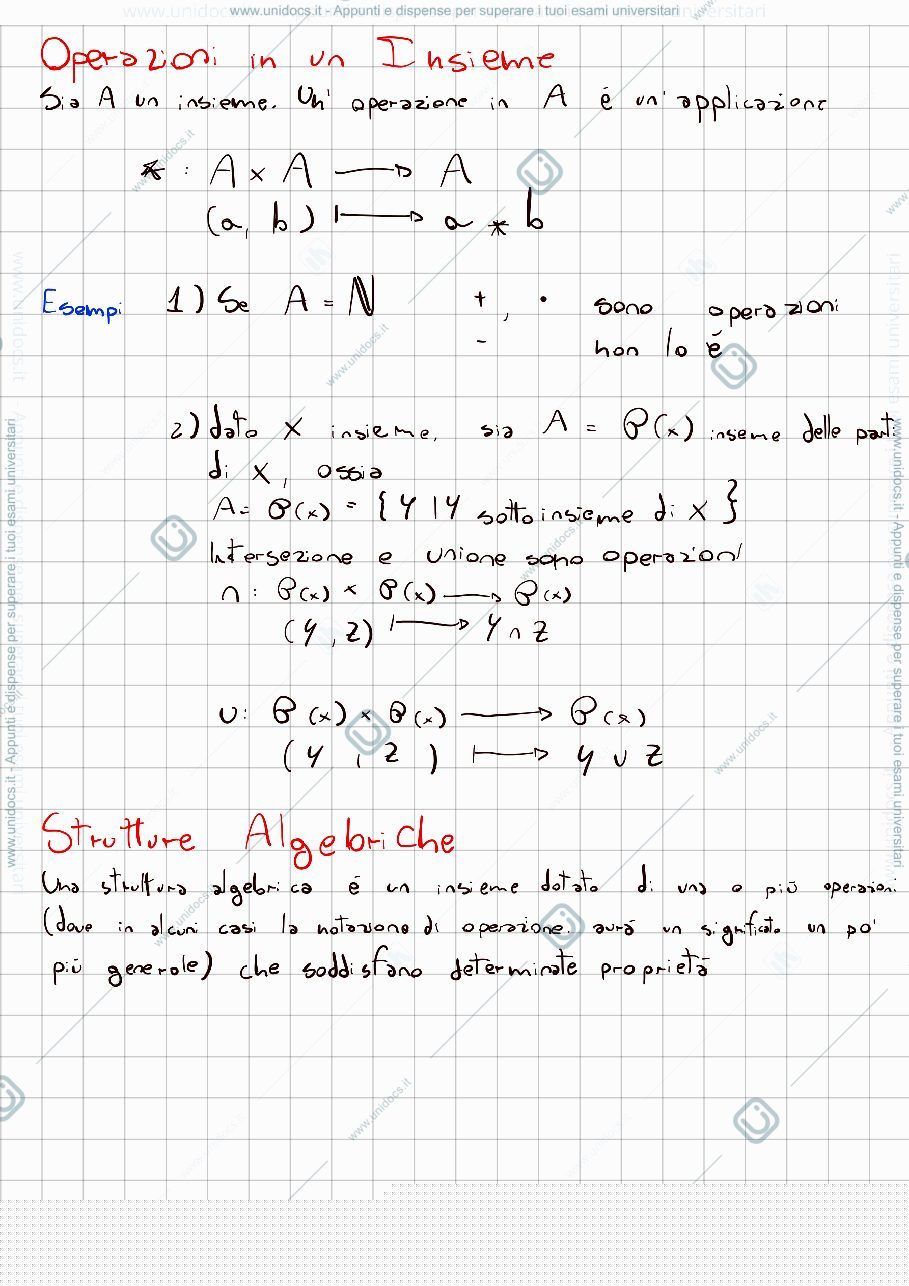 www.unidocs.it - Appunti e dispense per superare i tuoi esami universitari
Operazioni in un Insieme
Sia A un insieme. Un' operazione in A é un' applicazione
* : A × A ⟶ A
(a, b) ⟼ a * b
Esempi 1) Se A = ℕ + , · sono operazioni
- non lo é
2) dato X insieme, sia A = P(x) inseme delle parti
di X, ossia
A = P(x) = { Y | Y sottoinsieme di X }
Intersezione e unione sono operazioni
∩ : P(x) × P(x) ⟶ P(x)
(Y, Z) ⟼ Y ∩ Z
∪ : P(x) × P(x) ⟶ P(x)
(Y, Z) ⟼ Y ∪ Z
Strutture Algebriche
Una struttura algebrica é un insieme dotato di una o più operazioni
(dove in alcuni casi la notazione di operazione avrá un significato un po'
più generale) che soddisfano determinate proprietá
www.unidocs.it - Appunti e dispense per superare i tuoi esami universitari
www.unidocs.it - Appunti e dispense per superare i tuoi esami universitari
www.unidocs.it
www.unidocs.it
www.unidocs.it
www.unidocs.it
www.unidocs.it
www.unidocs.it